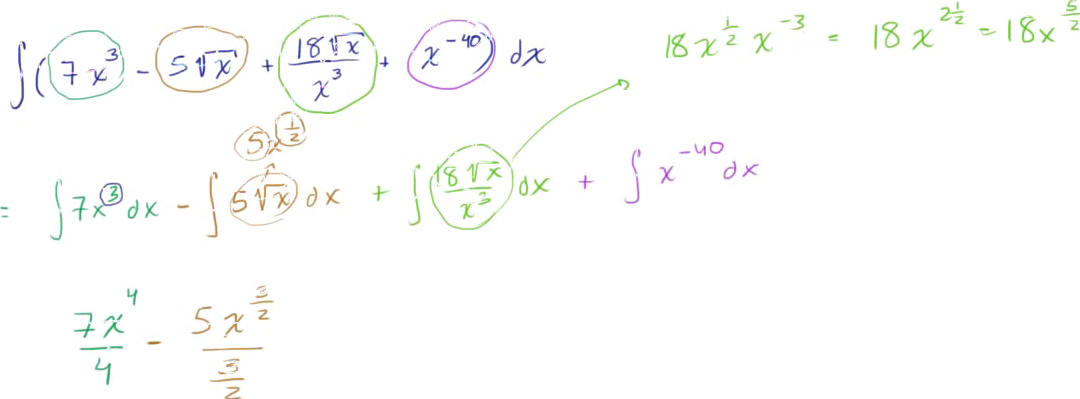 ∫(7x^3 - 5√x + 18√x/x^3 + x^-40) dx
18x^1/2 x^-3 = 18x^2 1/2 = 18x^5/2
5x^1/2
= ∫7x^3 dx - ∫5√x dx + ∫18√x/x^3 dx + ∫x^-40 dx
7x^4/4 - 5x^3/2 / 3/2